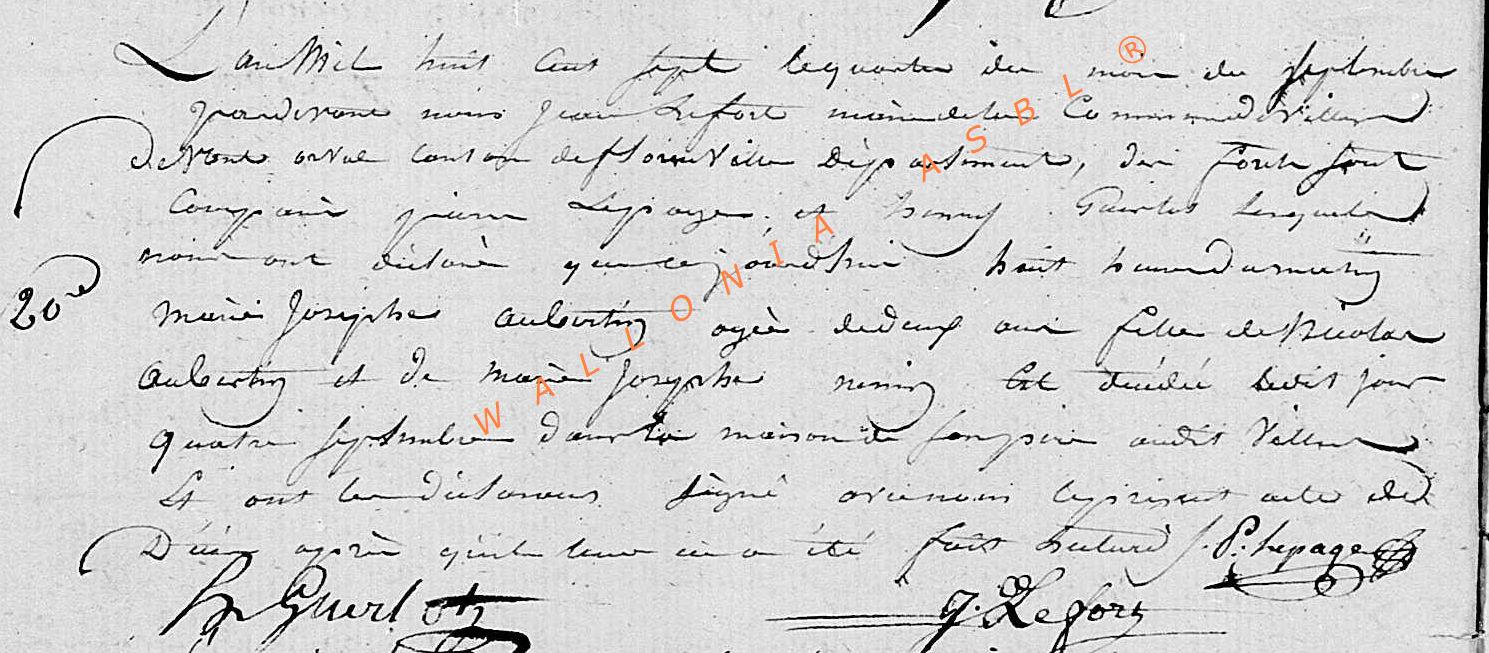 L'an Mil huit Cent sept le quatre du mois de septembre
pardevant nous Jean Lefort maire de la Commune de Villers
devant orval canton de florenville Département, des forets sont
Comparu pierre Lepage et henry Guerlot lesquels
nous ont déclaré que cejourd'hui huit heures du matin
20e
Marie Josephe aubertin agée de deux ans fille de Nicolas
aubertin et de Marie Josephe est décédée ledit jour
quatre septembre dans la maison de son père audit Villers
Et ont les déclarans signé avec nous le présent acte de
Décès après qu'il leur en a été fait lecture P. Lepage
h Guerlot J. Lefort
WALLONIA ASBL ®